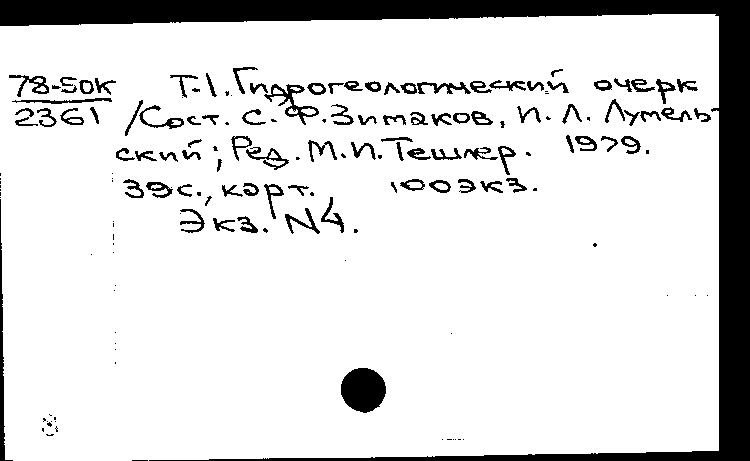 78-50К Т-1. Гидрогеологический очерк
2361 /Сост. С. Ф. Зимаков, И. Л. Лумель-
ский; Ред. М. И. Тешлер. 1979.
39с., карт. 100экз.
Экз. N4.